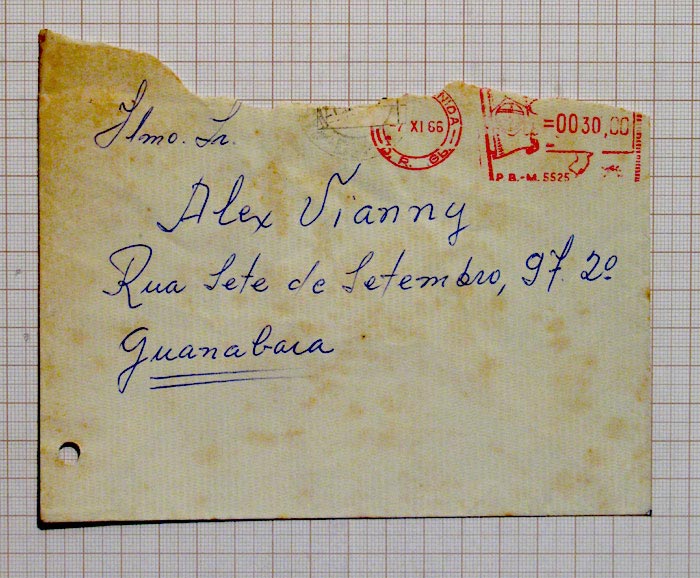 NIDA
7 XI 66
D.R. GB.
=0030,00
P.B.-M. 5525
Ilmo. Sr.
Alex Vianny
Rua Sete de Setembro, 97. 2º
Guanabara